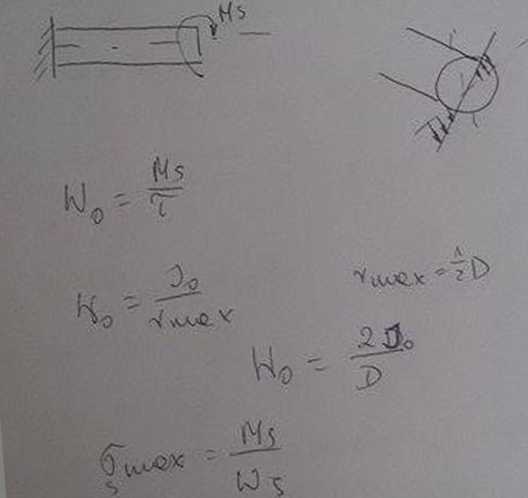 Ms
W₀ = Ms/τ
W₀ = J₀/rmax
rmax = 1/2 D
W₀ = 2J₀/D
σs max = Ms/Ws